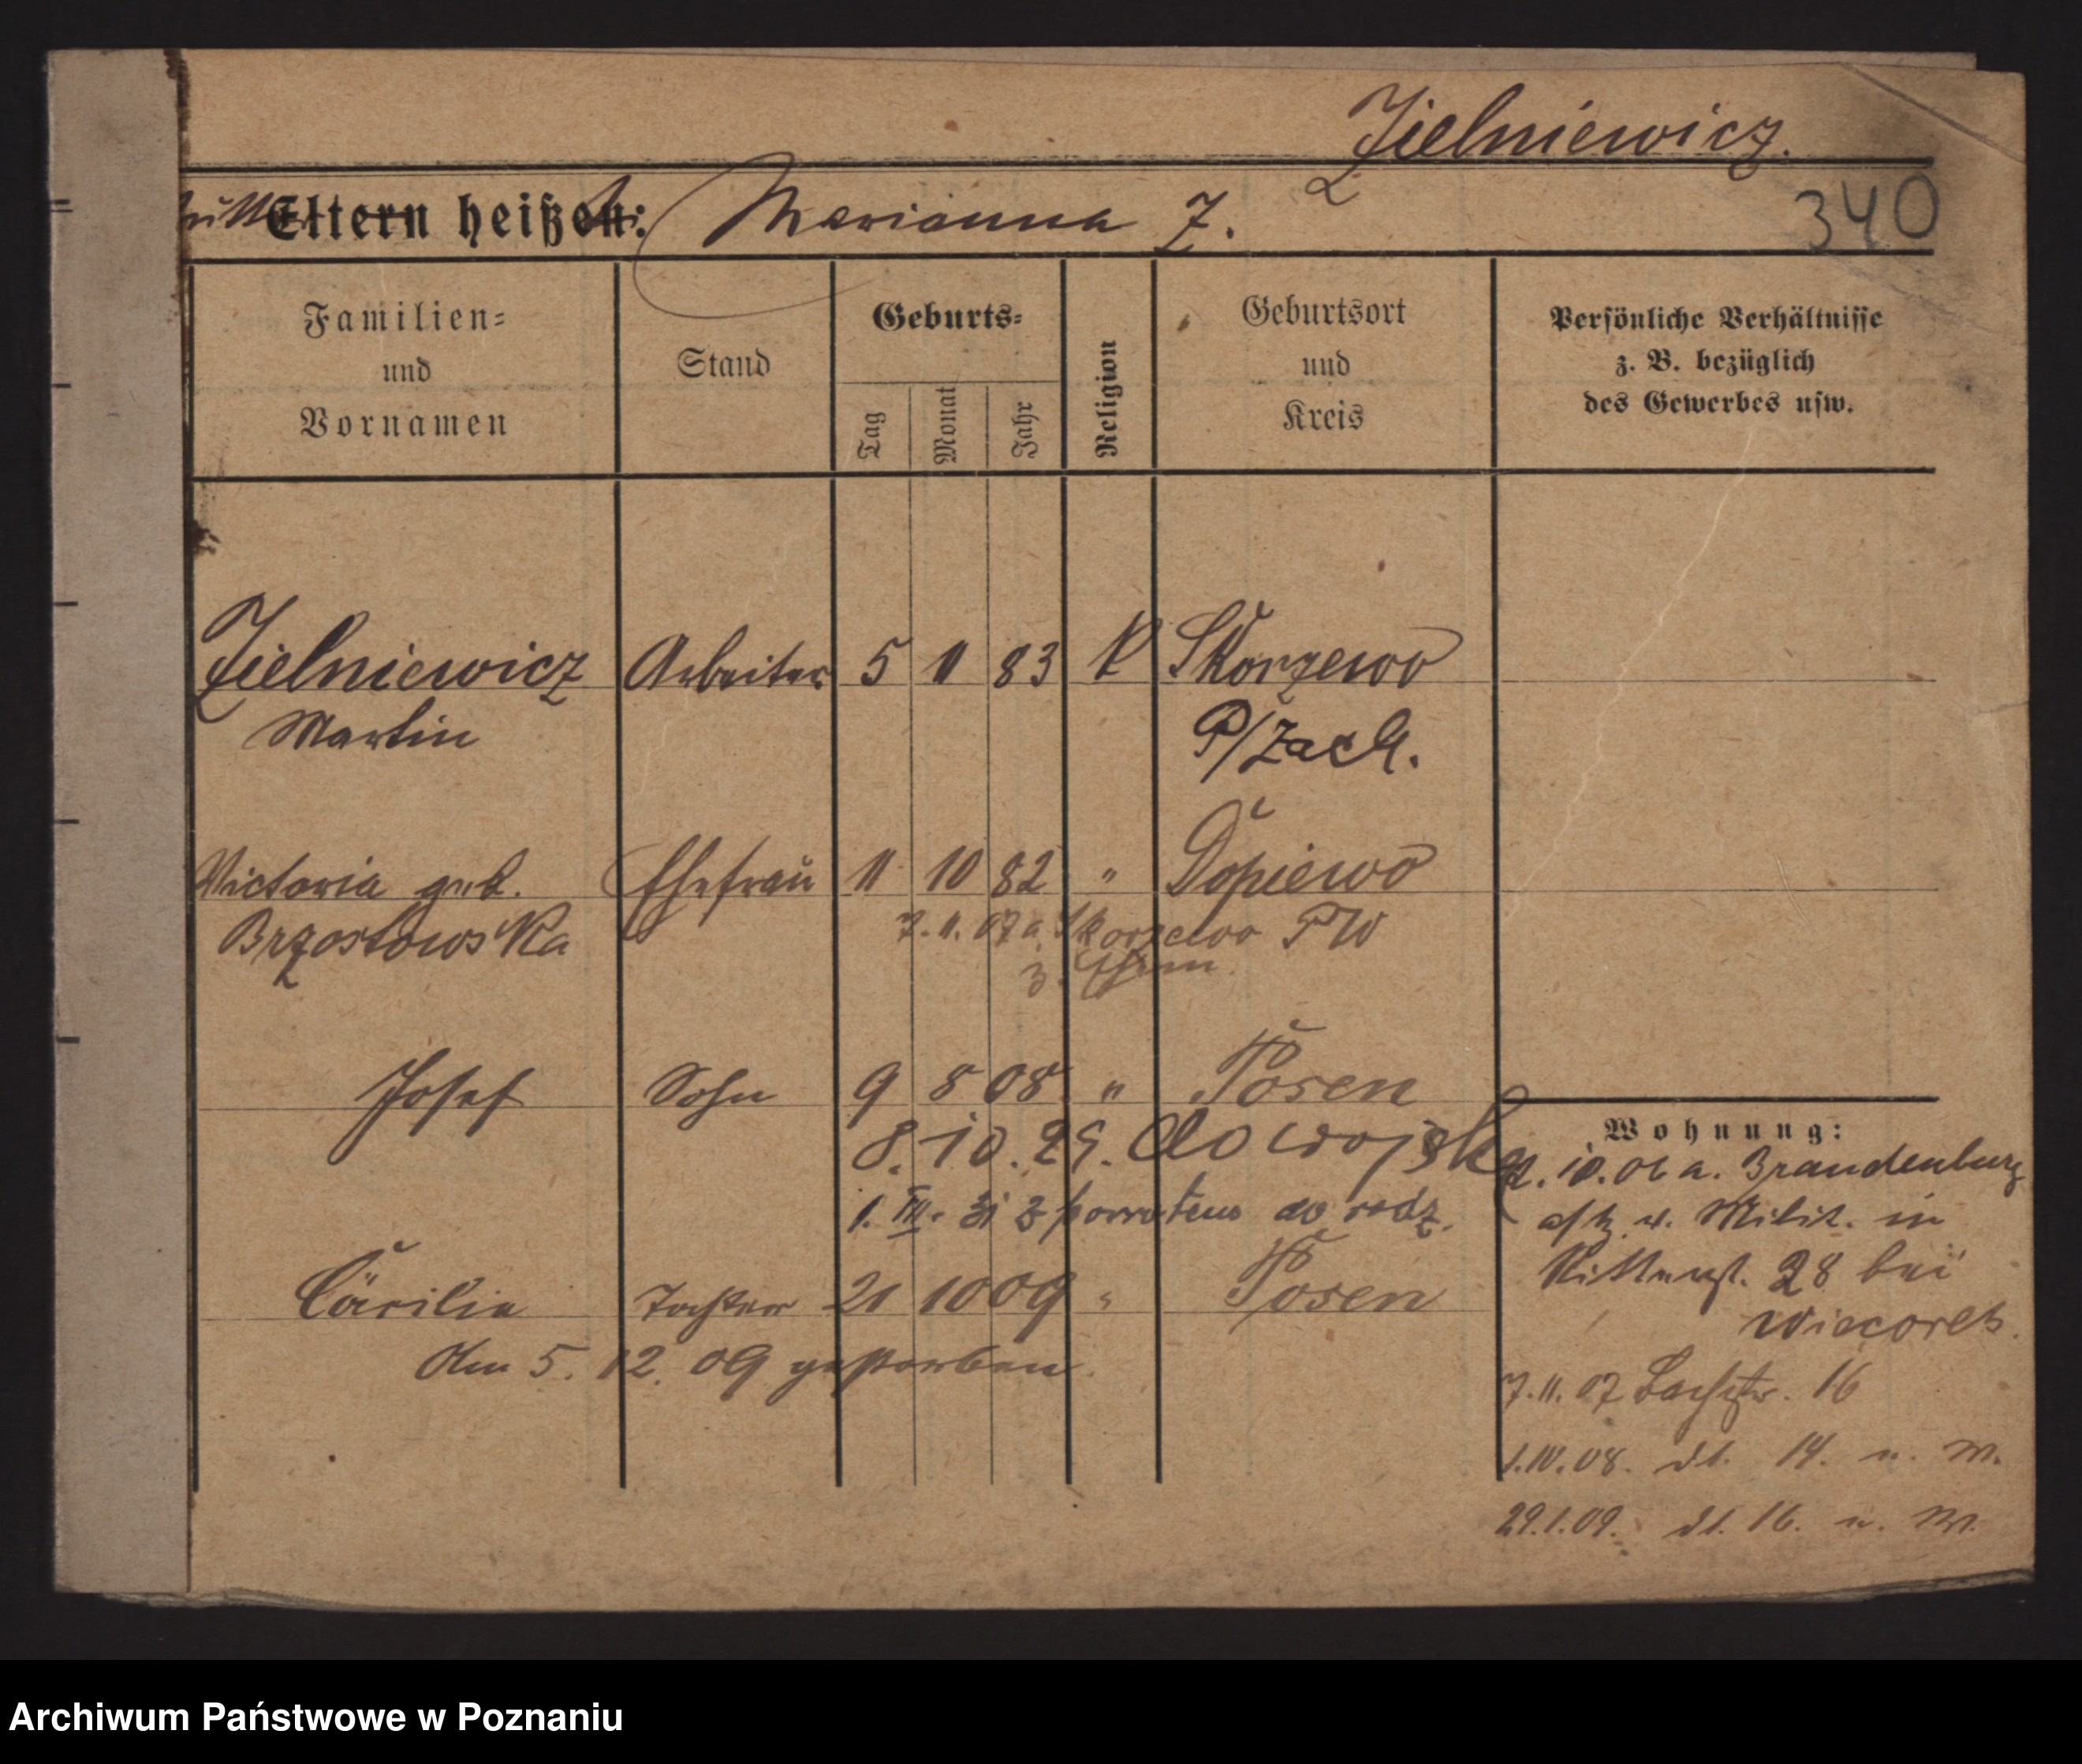 Zielniewicz.
Eltern heißen: Marianna Z.
340
Familien=
und
Vornamen
Stand
Geburts=
Tag
Monat
Jahr
Religion
Geburtsort
und
Kreis
Persönliche Verhältnisse
z. B. bezüglich
des Gewerbes usw.
Zielniewicz Arbeiter 5 11 83 K Skorzewo
Martin P/Zach.
Victoria geb. Ehefrau 11 10 82 " Dopiewo
Brzostowska 7. 11. 07 a. Skorzewo PW
z. Ehem.
Josef Sohn 9 8 08 " Posen
8. 10. 29. do wojska
1. III. 31 z powrotem do rodz.
Cäcilie Tochter 21 10 09 " Posen
Am 5. 12. 09 gestorben.
Wohnung:
10. 06 a. Brandenburg
v. Milit. in
28 bei
7. 11. 07 16
1. IV. 08. dt. 14. u. W.
29. 1. 09. dt. 16. u. W.
Archiwum Państwowe w Poznaniu